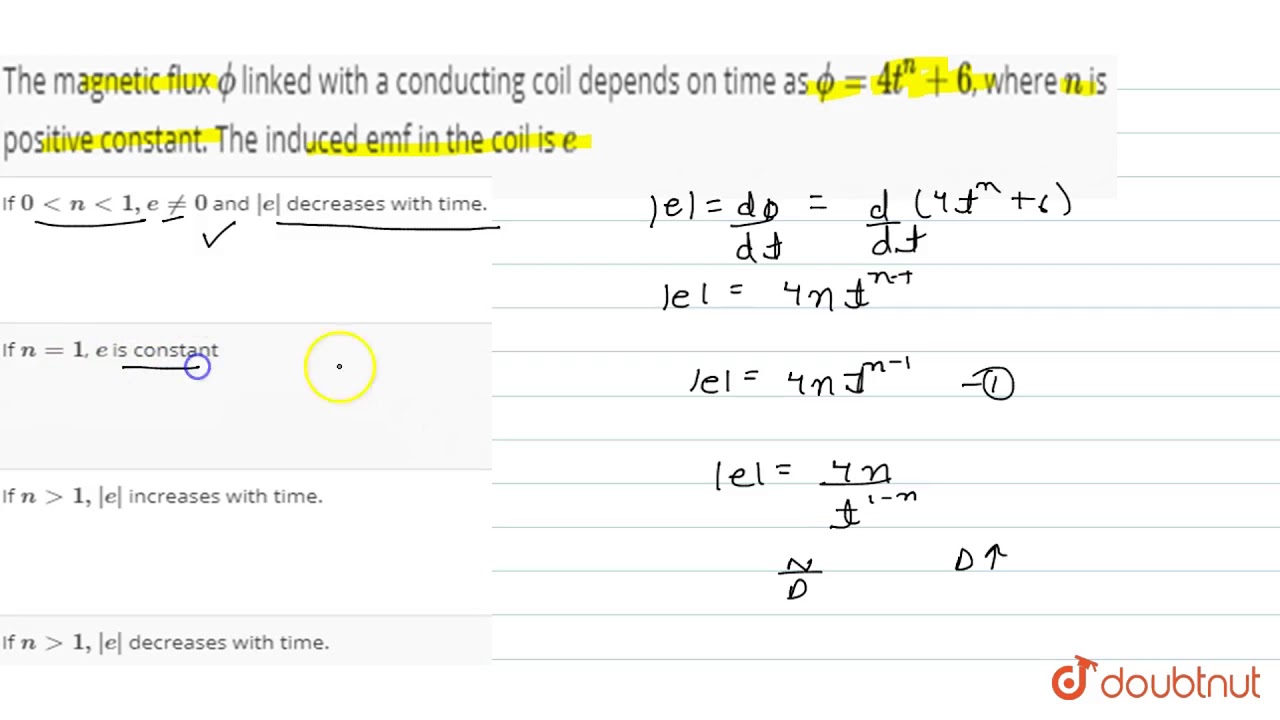 The magnetic flux ϕ linked with a conducting coil depends on time as ϕ = 4tⁿ + 6, where n is
positive constant. The induced emf in the coil is e
If 0 < n < 1, e ≠ 0 and |e| decreases with time.
If n = 1, e is constant
If n > 1, |e| increases with time.
If n > 1, |e| decreases with time.
|e| = dϕ/dt = d/dt (4tⁿ + 6)
|e| = 4n tⁿ⁻¹
|e| = 4n tⁿ⁻¹ –①
|e| = 4n/t¹⁻ⁿ
N/D D↑
doubtnut